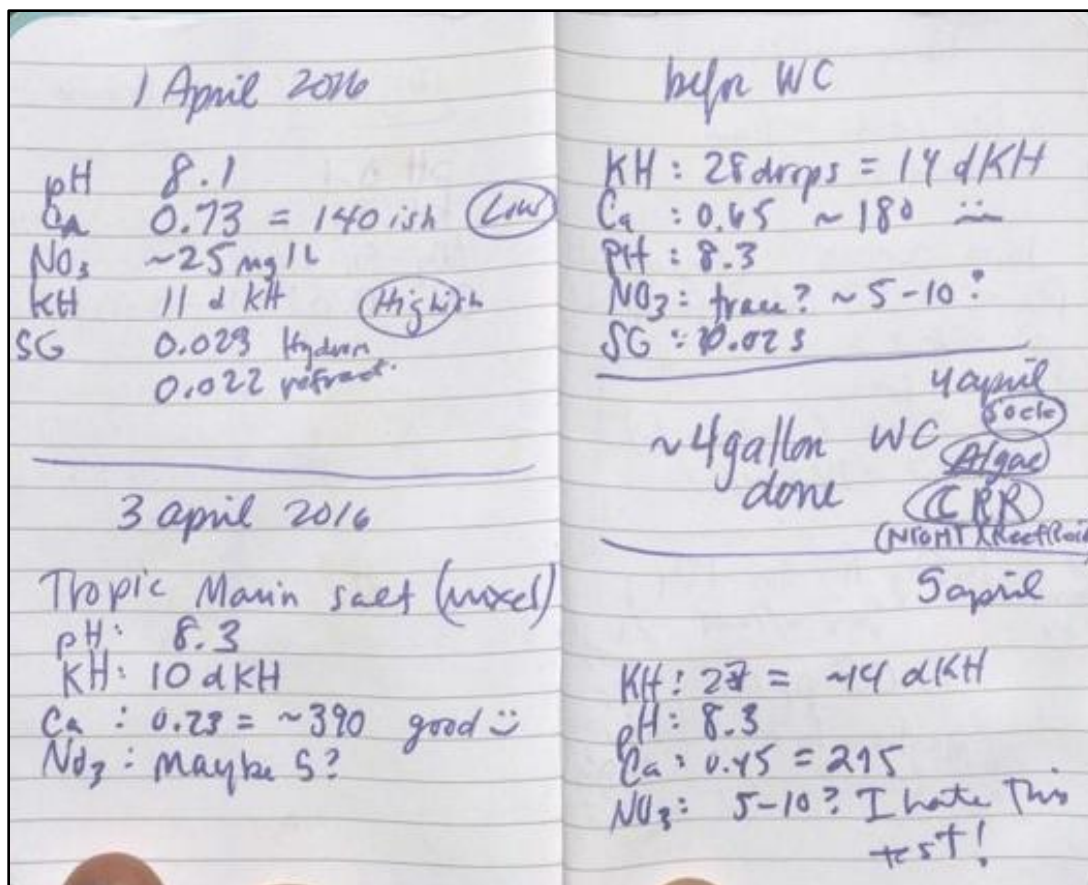 1 April 2016
pH 8.1
Ca 0.73 = 140 ish Low
NO3 ~25 mg/L
KH 11 d KH Highish
SG 0.023 Hydrom
0.022 refract.
3 april 2016
Tropic Marin salt (mixed)
pH: 8.3
KH: 10 dKH
Ca : 0.23 = ~390 good
NO3 : Maybe 5?
befor WC
KH : 28 drops = 14 dKH
Ca : 0.65 ~ 180
pH : 8.3
NO3 : trace? ~ 5-10?
SG : 0.023
4 april
~4 gallon WC
done
Sock
Algae
CRR
(NIGHT
5 april
KH : 27 = ~14 dKH
pH : 8.3
Ca : 0.45 =
NO3 : 5-10? I hate this
test!